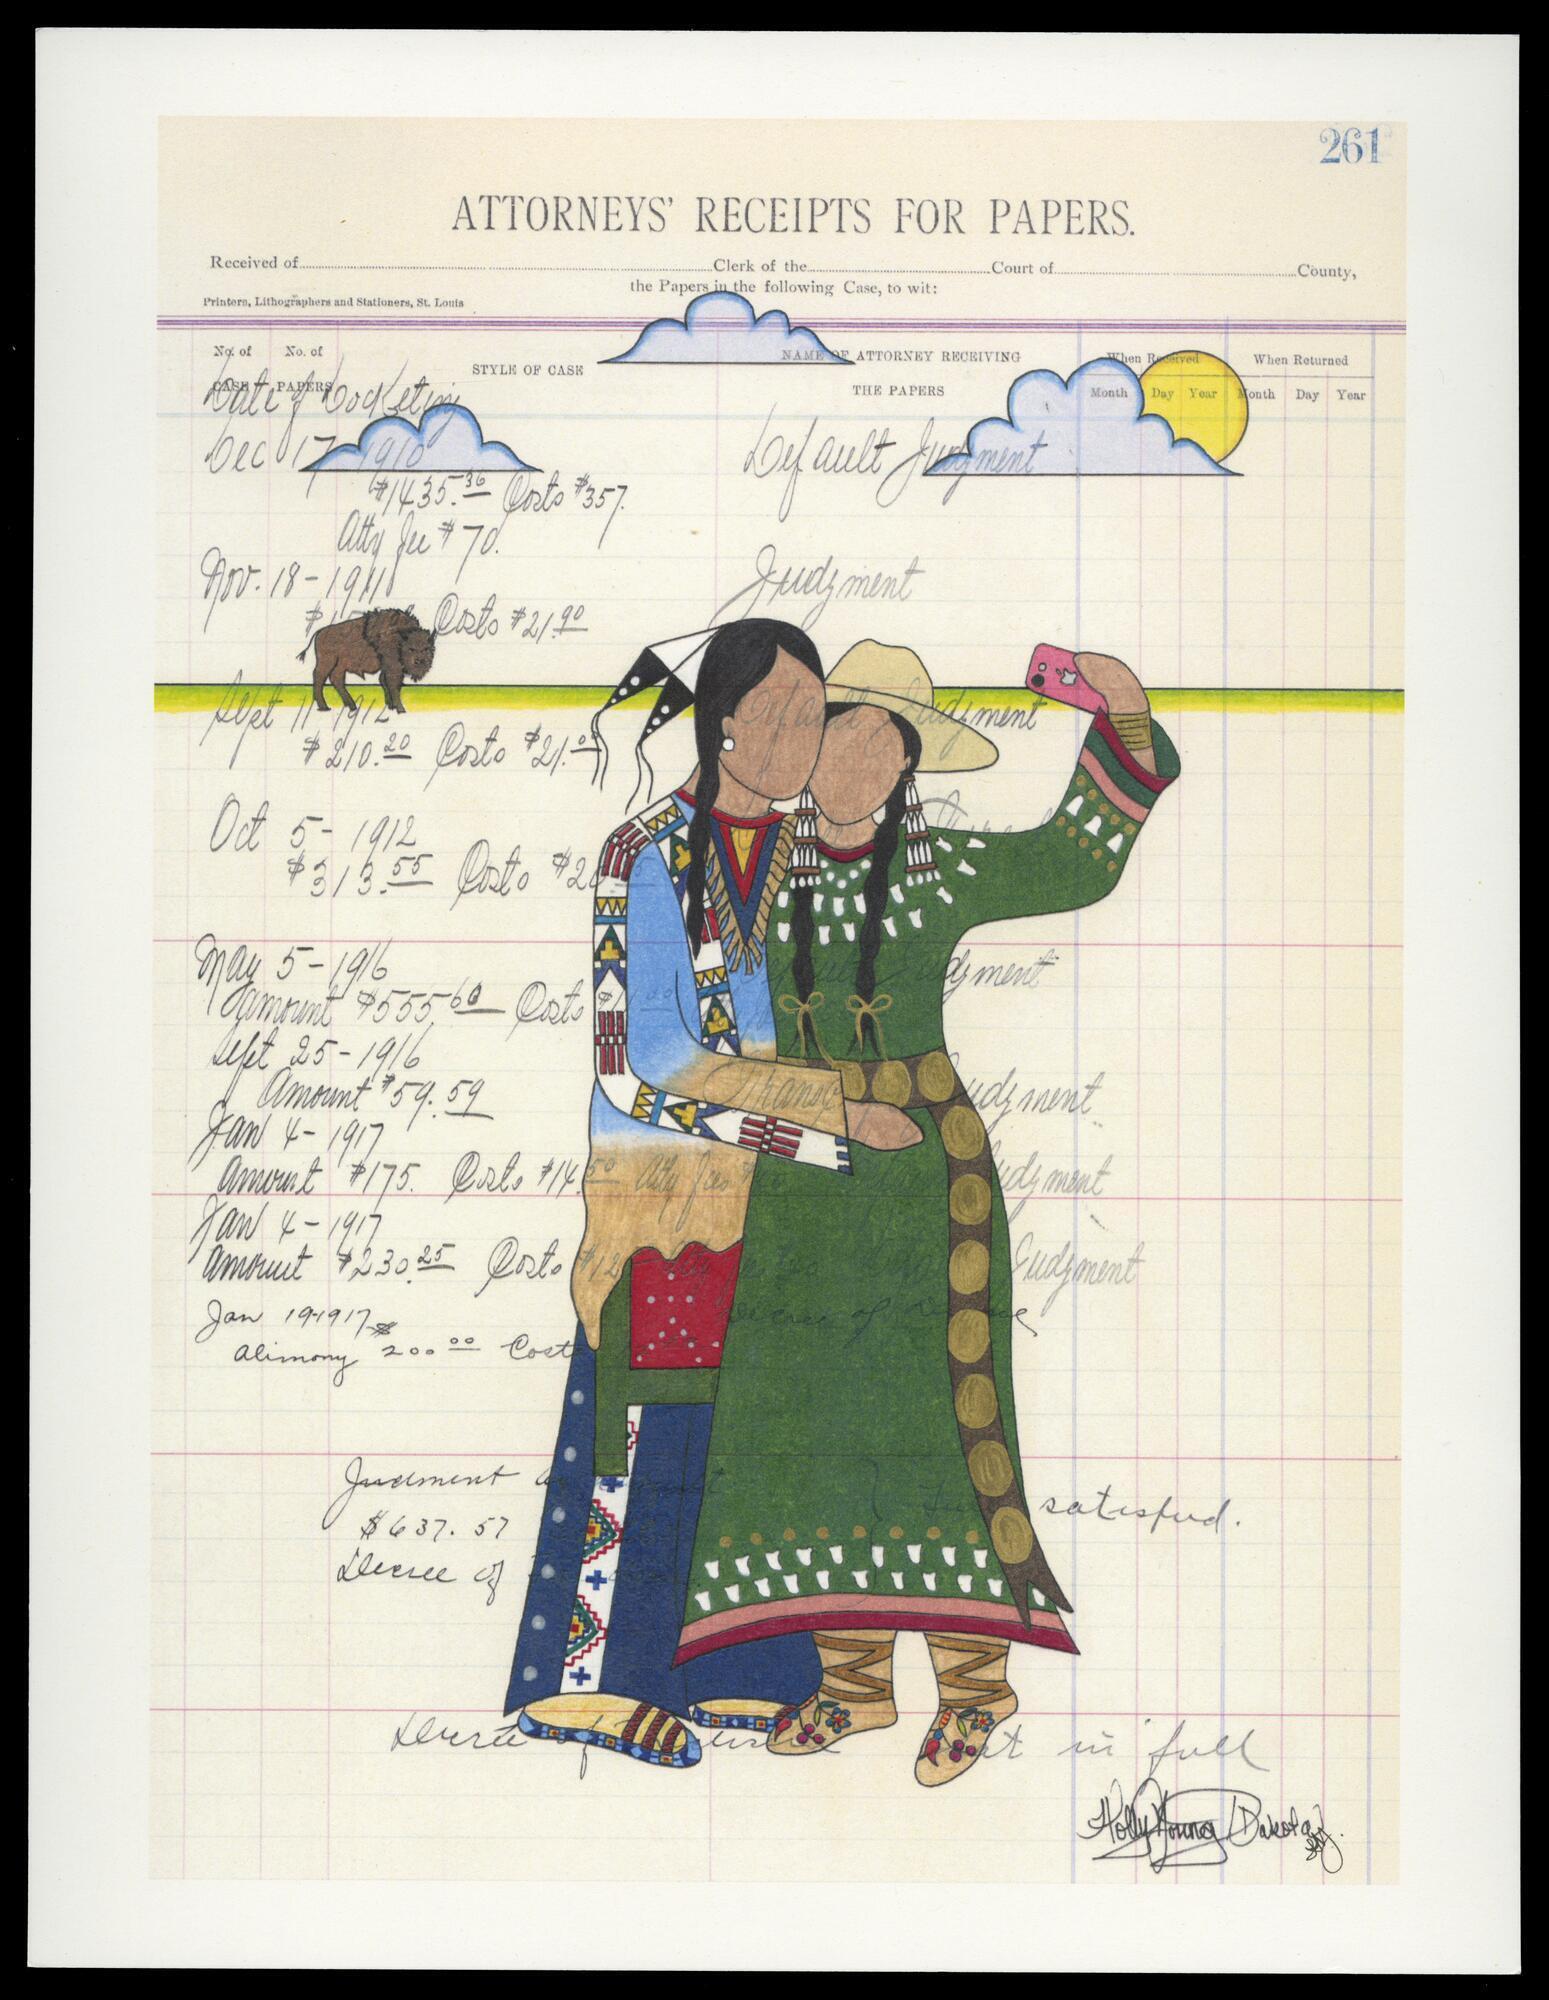 261
ATTORNEYS' RECEIPTS FOR PAPERS.
Received of Clerk of the Court of County,
the Papers in the following Case, to wit:
Printers, Lithographers and Stationers, St. Louis
No. of CASE No. of PAPERS STYLE OF CASE NAME OF ATTORNEY RECEIVING THE PAPERS When Received Month Day Year When Returned Month Day Year
Date of Docketing
Dec 17 1910 Default Judgment
$1435.36 Costs $357.
Atty fee $70.
Nov. 18-1911 Judgment
Costs $21.90
Sept 11-1912 Default Judgment
$210.20 Costs $21.00
Oct 5-1912
$313.55 Costs
May 5-1916 Judgment
amount $555.60 Costs
Sept 25-1916
Amount $59.59 Judgment
Jan 4-1917
Amount $175. Costs $14.50 Atty fees Judgment
Jan 4-1917
Amount $230.25 Costs $12 Judgment
Jan 19-1917 Decree of
alimony $200.00 Cost
Judment
$637.57 satisfied.
Decree of
Decree of in full
Holly Young Dakota